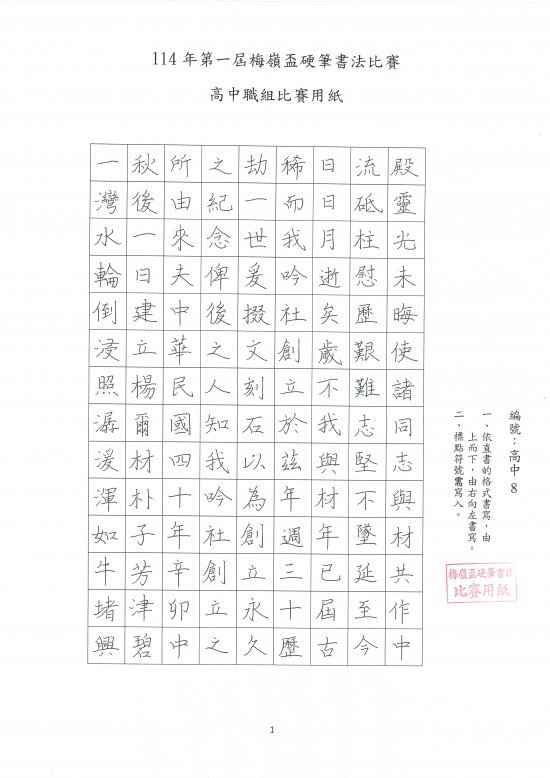 114年第一屆梅嶺盃硬筆書法比賽
高中職組比賽用紙
編號：高中 8
一、依直書的格式書寫，由
上而下，由右向左書寫。
二、標點符號需寫入。
梅嶺盃硬筆書法
比賽用紙
殿靈光未晦使諸同志與材共作中
流砥柱慰歷艱難志堅不墜延至今
日日月逝矣歲不我與材年已屆古
稀而我吟社創立於茲年週三十歷
劫一世爰掇文刻石以為創立永久
之紀念俾後之人知我吟社創立之
所由來夫中華民國四十年辛卯中
秋後一日建立楊爾材朴子芳津碧
一灣水輪倒浸照潺湲渾如牛堵興
1